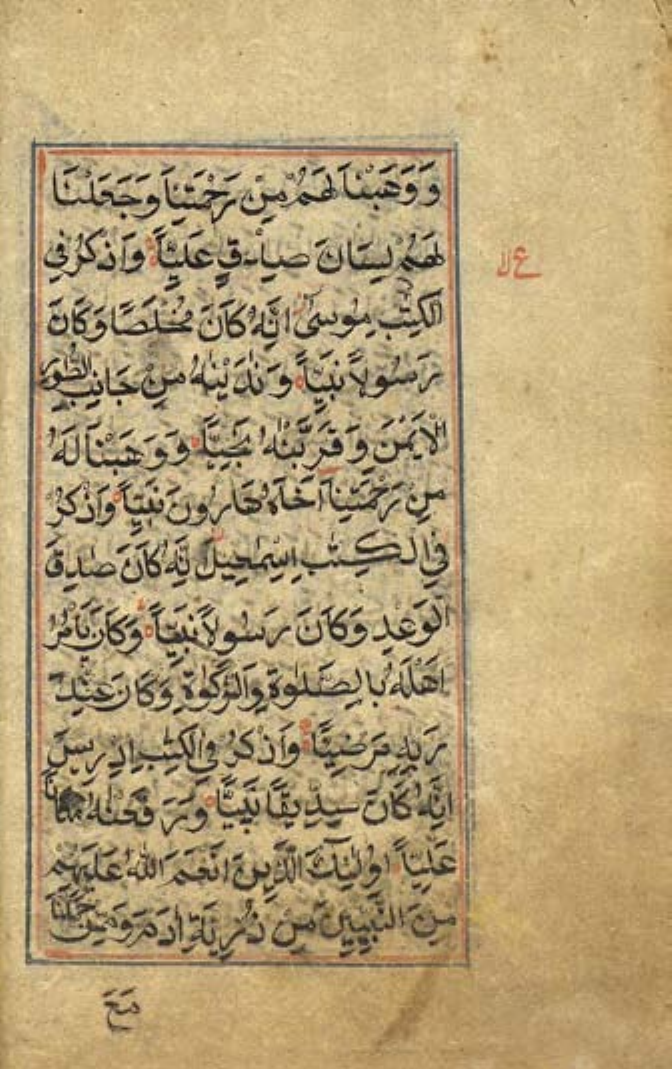 وَوَهَبْنَا لَهُمْ مِنْ رَحْمَتِنَا وَجَعَلْنَا
لَهُمْ لِسَانَ صِدْقٍ عَلِيًّا وَاذْكُرْ فِي
الْكِتٰبِ مُوسٰى اِنَّهُ كَانَ مُخْلَصًا وَكَانَ
رَسُولًا نَبِيًّا وَنٰدَيْنٰهُ مِنْ جَانِبِ الطُّورِ
الْاَيْمَنِ وَقَرَّبْنٰهُ نَجِيًّا وَوَهَبْنَا لَهُ
مِنْ رَحْمَتِنَا اَخَاهُ هَارُونَ نَبِيًّا وَاذْكُرْ
فِي الْكِتٰبِ اِسْمٰعِيلَ نَّهُ كَانَ صٰدِقَ
الْوَعْدِ وَكَانَ رَسُولًا نَبِيًّا وَكَانَ يَاْمُرُ
اَهْلَهُ بِالصَّلٰوةِ وَالزَّكٰوةِ وَكَانَ عِنْدَ
رَبِّهِ مَرْضِيًّا وَاذْكُرْ فِي الْكِتٰبِ اِدْرِيسَ
اِنَّهُ كَانَ سِدِّيقًا نَبِيًّا وَرَفَعْنٰهُ مَكَانًا
عَلِيًّا اُولٰئِكَ الَّذِينَ اَنْعَمَ اللّٰهُ عَلَيْهِمْ
مِنَ النَّبِيِّينَ مِنْ ذُرِّيَّةِ اٰدَمَ وَمِمَّنْ حَمَلْنَا
مَعَ